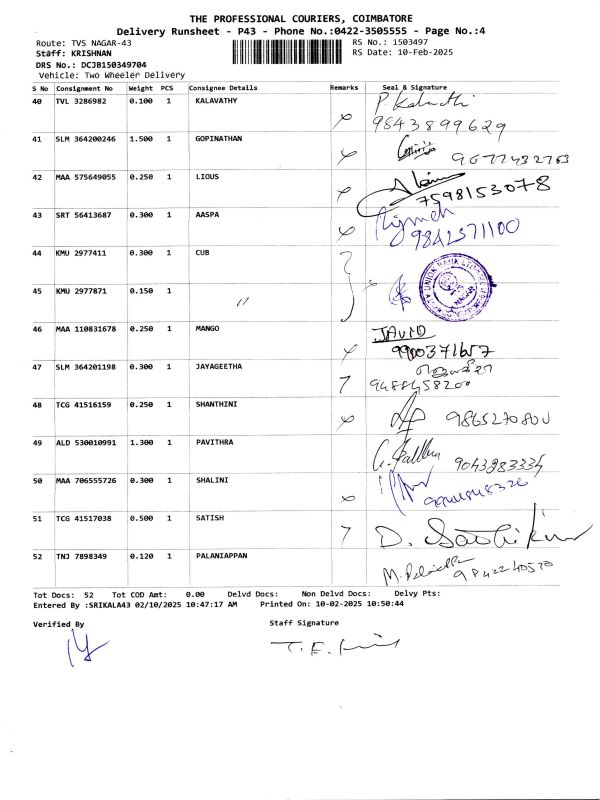 THE PROFESSIONAL COURIERS, COIMBATORE
Delivery Runsheet - P43 - Phone No.:0422-3505555 - Page No.:4
Route: TVS NAGAR-43 RS No.: 1503497
Staff: KRISHNAN RS Date: 10-Feb-2025
DRS No.: DCJB150349704
Vehicle: Two Wheeler Delivery
S No Consignment No Weight PCS Consignee Details Remarks Seal & Signature
40 TVL 3286982 0.100 1 KALAVATHY
9843899629
41 SLM 364200246 1.500 1 GOPINATHAN
42 MAA 575649055 0.250 1 LIOUS
7598153078
43 SRT 56413687 0.300 1 AASPA
9842571100
44 KMU 2977411 0.300 1 CUB
45 KMU 2977871 0.150 1 "
46 MAA 110831678 0.250 1 MANGO
JAVID
9900371657
47 SLM 364201198 0.300 1 JAYAGEETHA
9488458200
48 TCG 41516159 0.250 1 SHANTHINI
49 ALD 530010991 1.300 1 PAVITHRA
9043283334
50 MAA 706555726 0.300 1 SHALINI
51 TCG 41517038 0.500 1 SATISH
D. Sathikumar
52 TNJ 7898349 0.120 1 PALANIAPPAN
Tot Docs: 52 Tot COD Amt: 0.00 Delvd Docs: Non Delvd Docs: Delvy Pts:
Entered By :SRIKALA43 02/10/2025 10:47:17 AM Printed On: 10-02-2025 10:50:44
Verified By Staff Signature